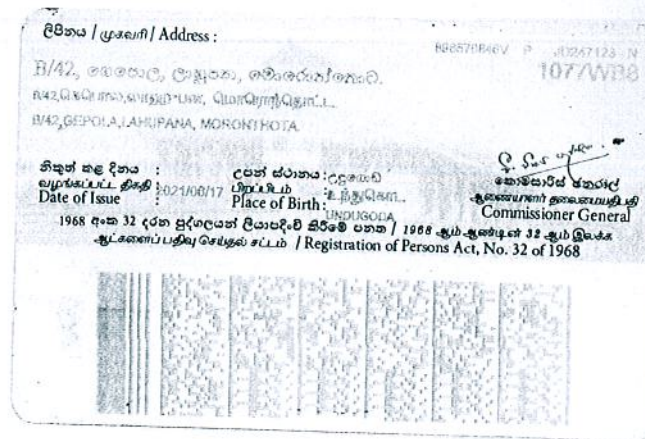 ලිපිනය / முகவரி / Address :
P JD247123 N
1077WB8
B/42, ගෙපොල, ලාහුපන, මොරොන්තොට.
B/42,GEPOLA,LAHUPANA, MORONTHOTA.
නිකුත් කළ දිනය :
வழங்கப்பட்ட திகதி :
Date of Issue
2021/08/17
උපන් ස්ථානය :
பிறப்பிடம் :
Place of Birth :
UNDUGODA
කොමසාරිස් ජනරාල්
ஆணையாளர் தலைமையதிபதி
Commissioner General
1968 අංක 32 දරන පුද්ගලයන් ලියාපදිංචි කිරීමේ පනත / 1968 ஆம் ஆண்டின் 32 ஆம் இலக்க
ஆட்களைப் பதிவு செய்தல் சட்டம் / Registration of Persons Act, No. 32 of 1968